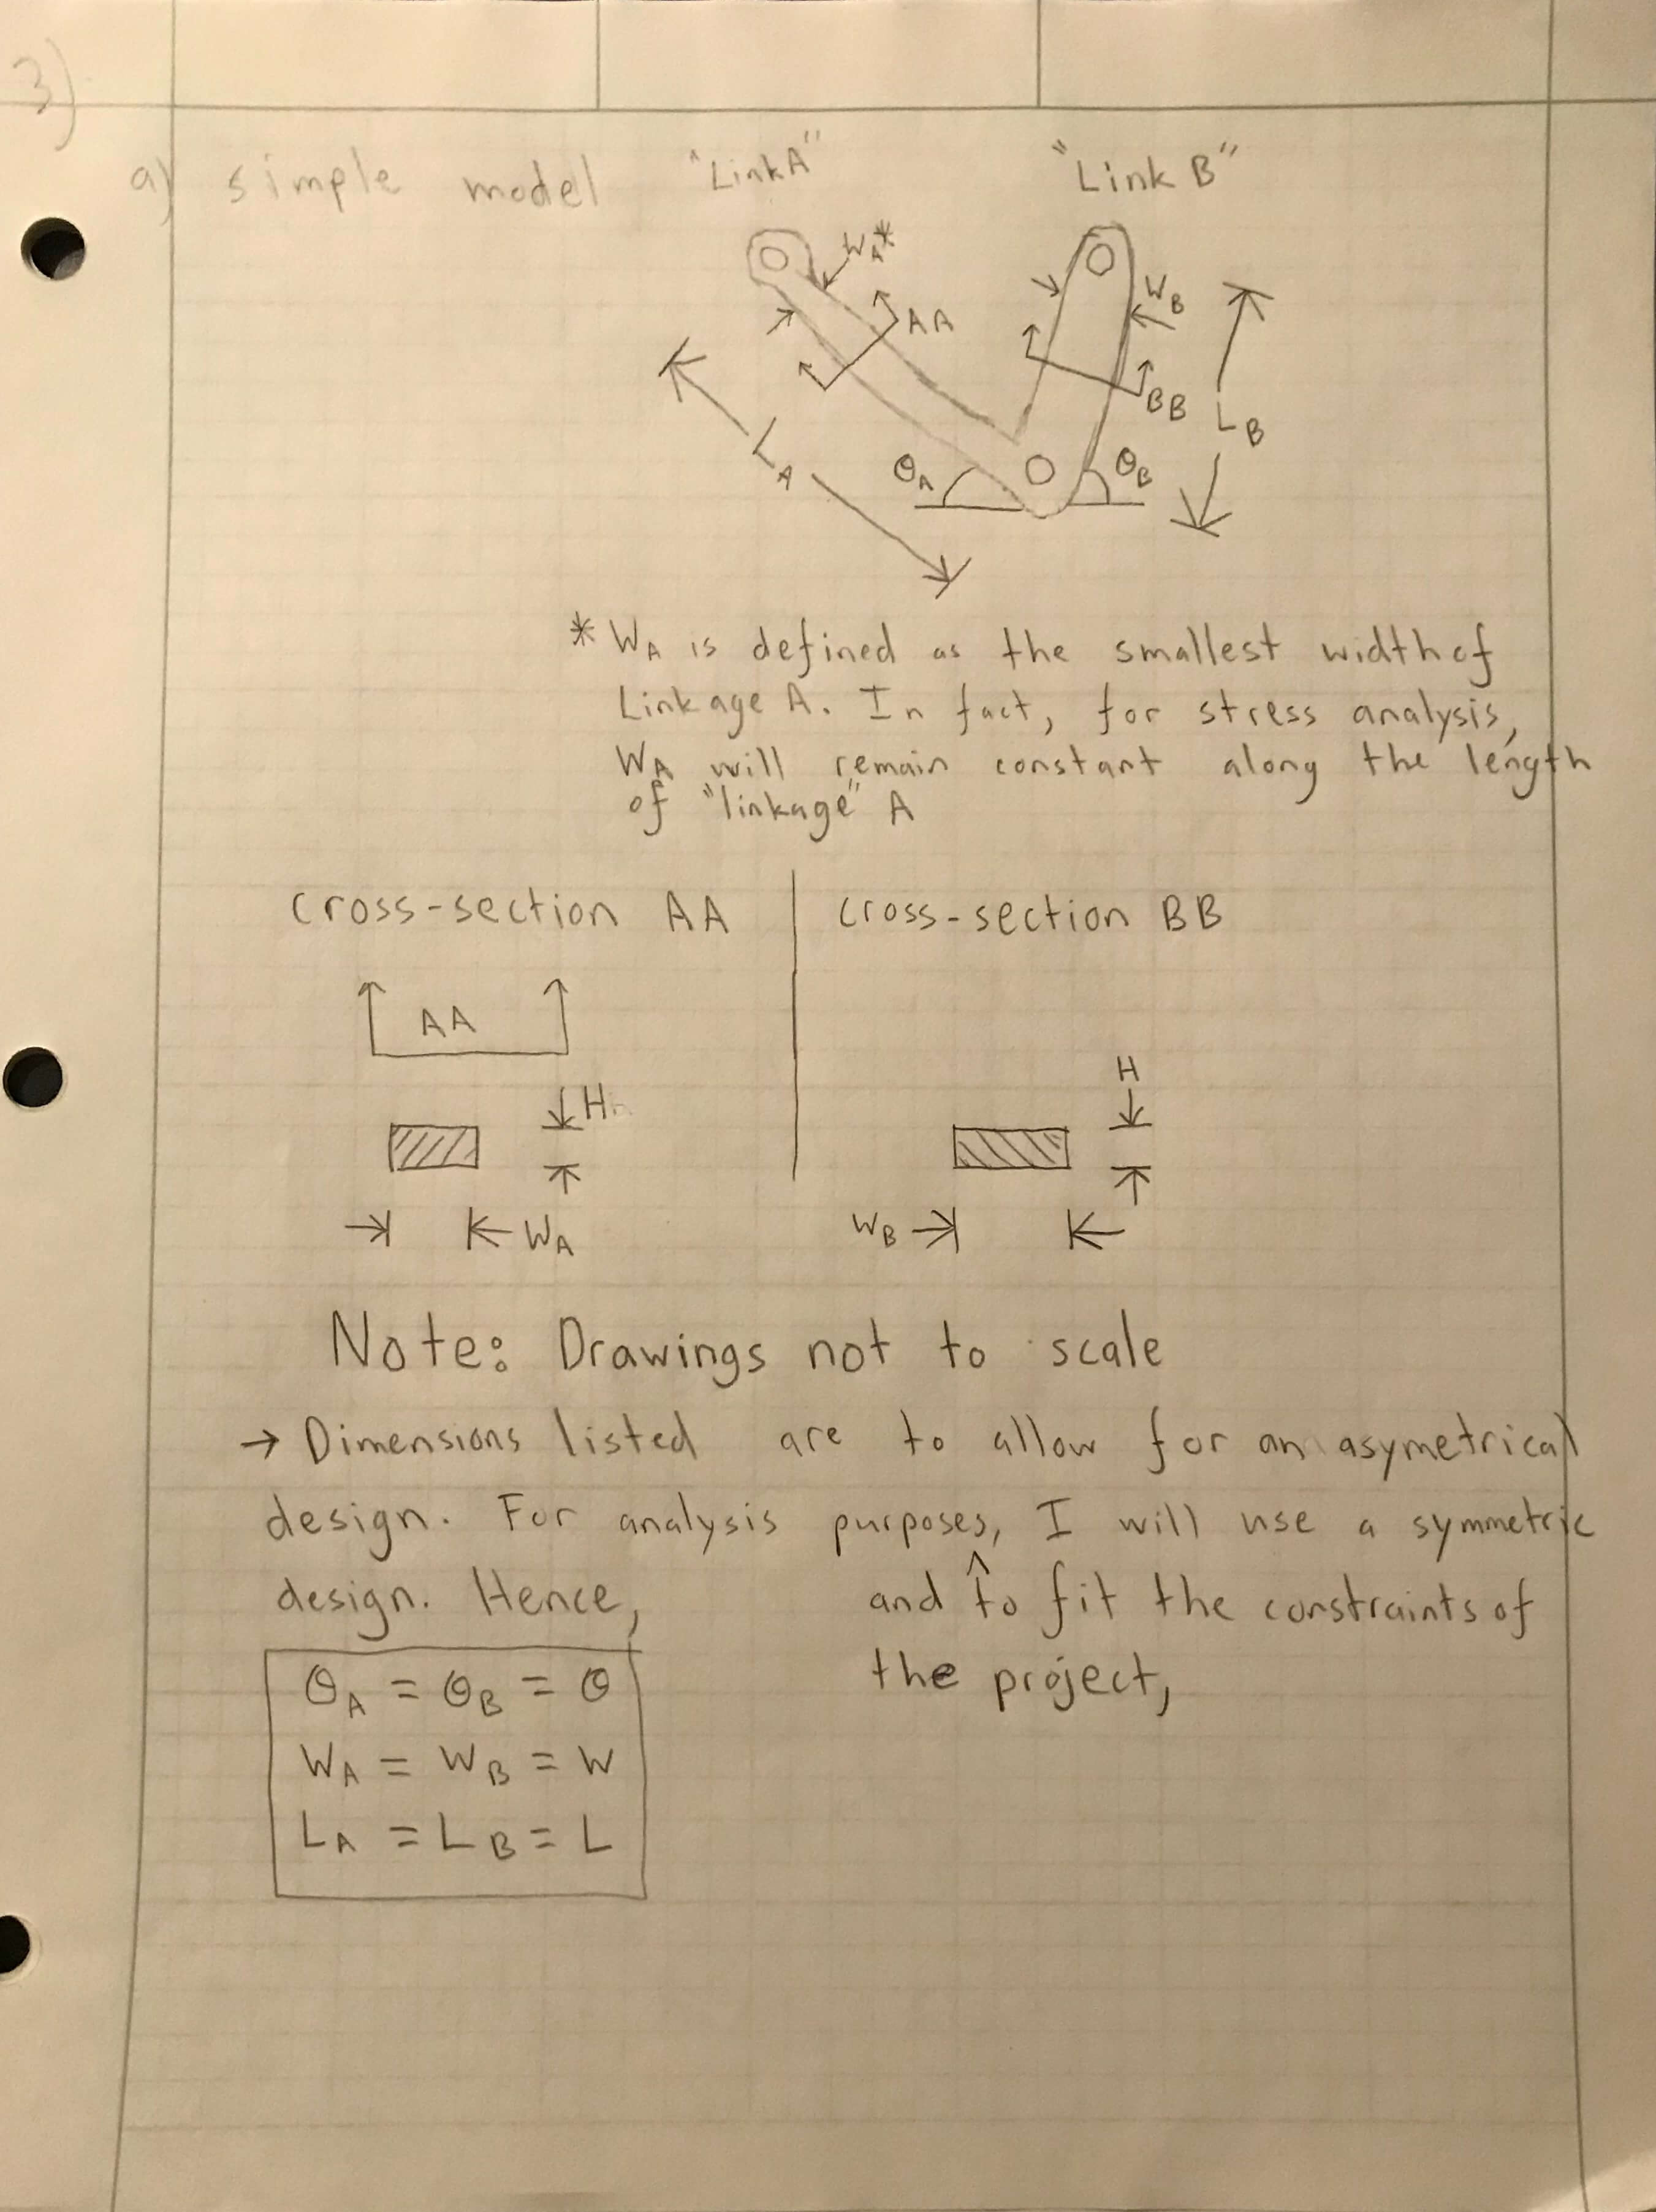 3)
a) simple model "Link A" "Link B"
WA*
WB
AA
BB
LA
LB
θA
θB
* WA is defined as the smallest width of
Linkage A. In fact, for stress analysis,
WA will remain constant along the length
of "linkage" A
cross-section AA
cross-section BB
AA
H
H
WA
WB
Note: Drawings not to scale
→ Dimensions listed are to allow for an asymetrical
design. For analysis purposes, I will use a symmetric
design. Hence,
^
and to fit the constraints of
the project,
θA = θB = θ
WA = WB = W
LA = LB = L